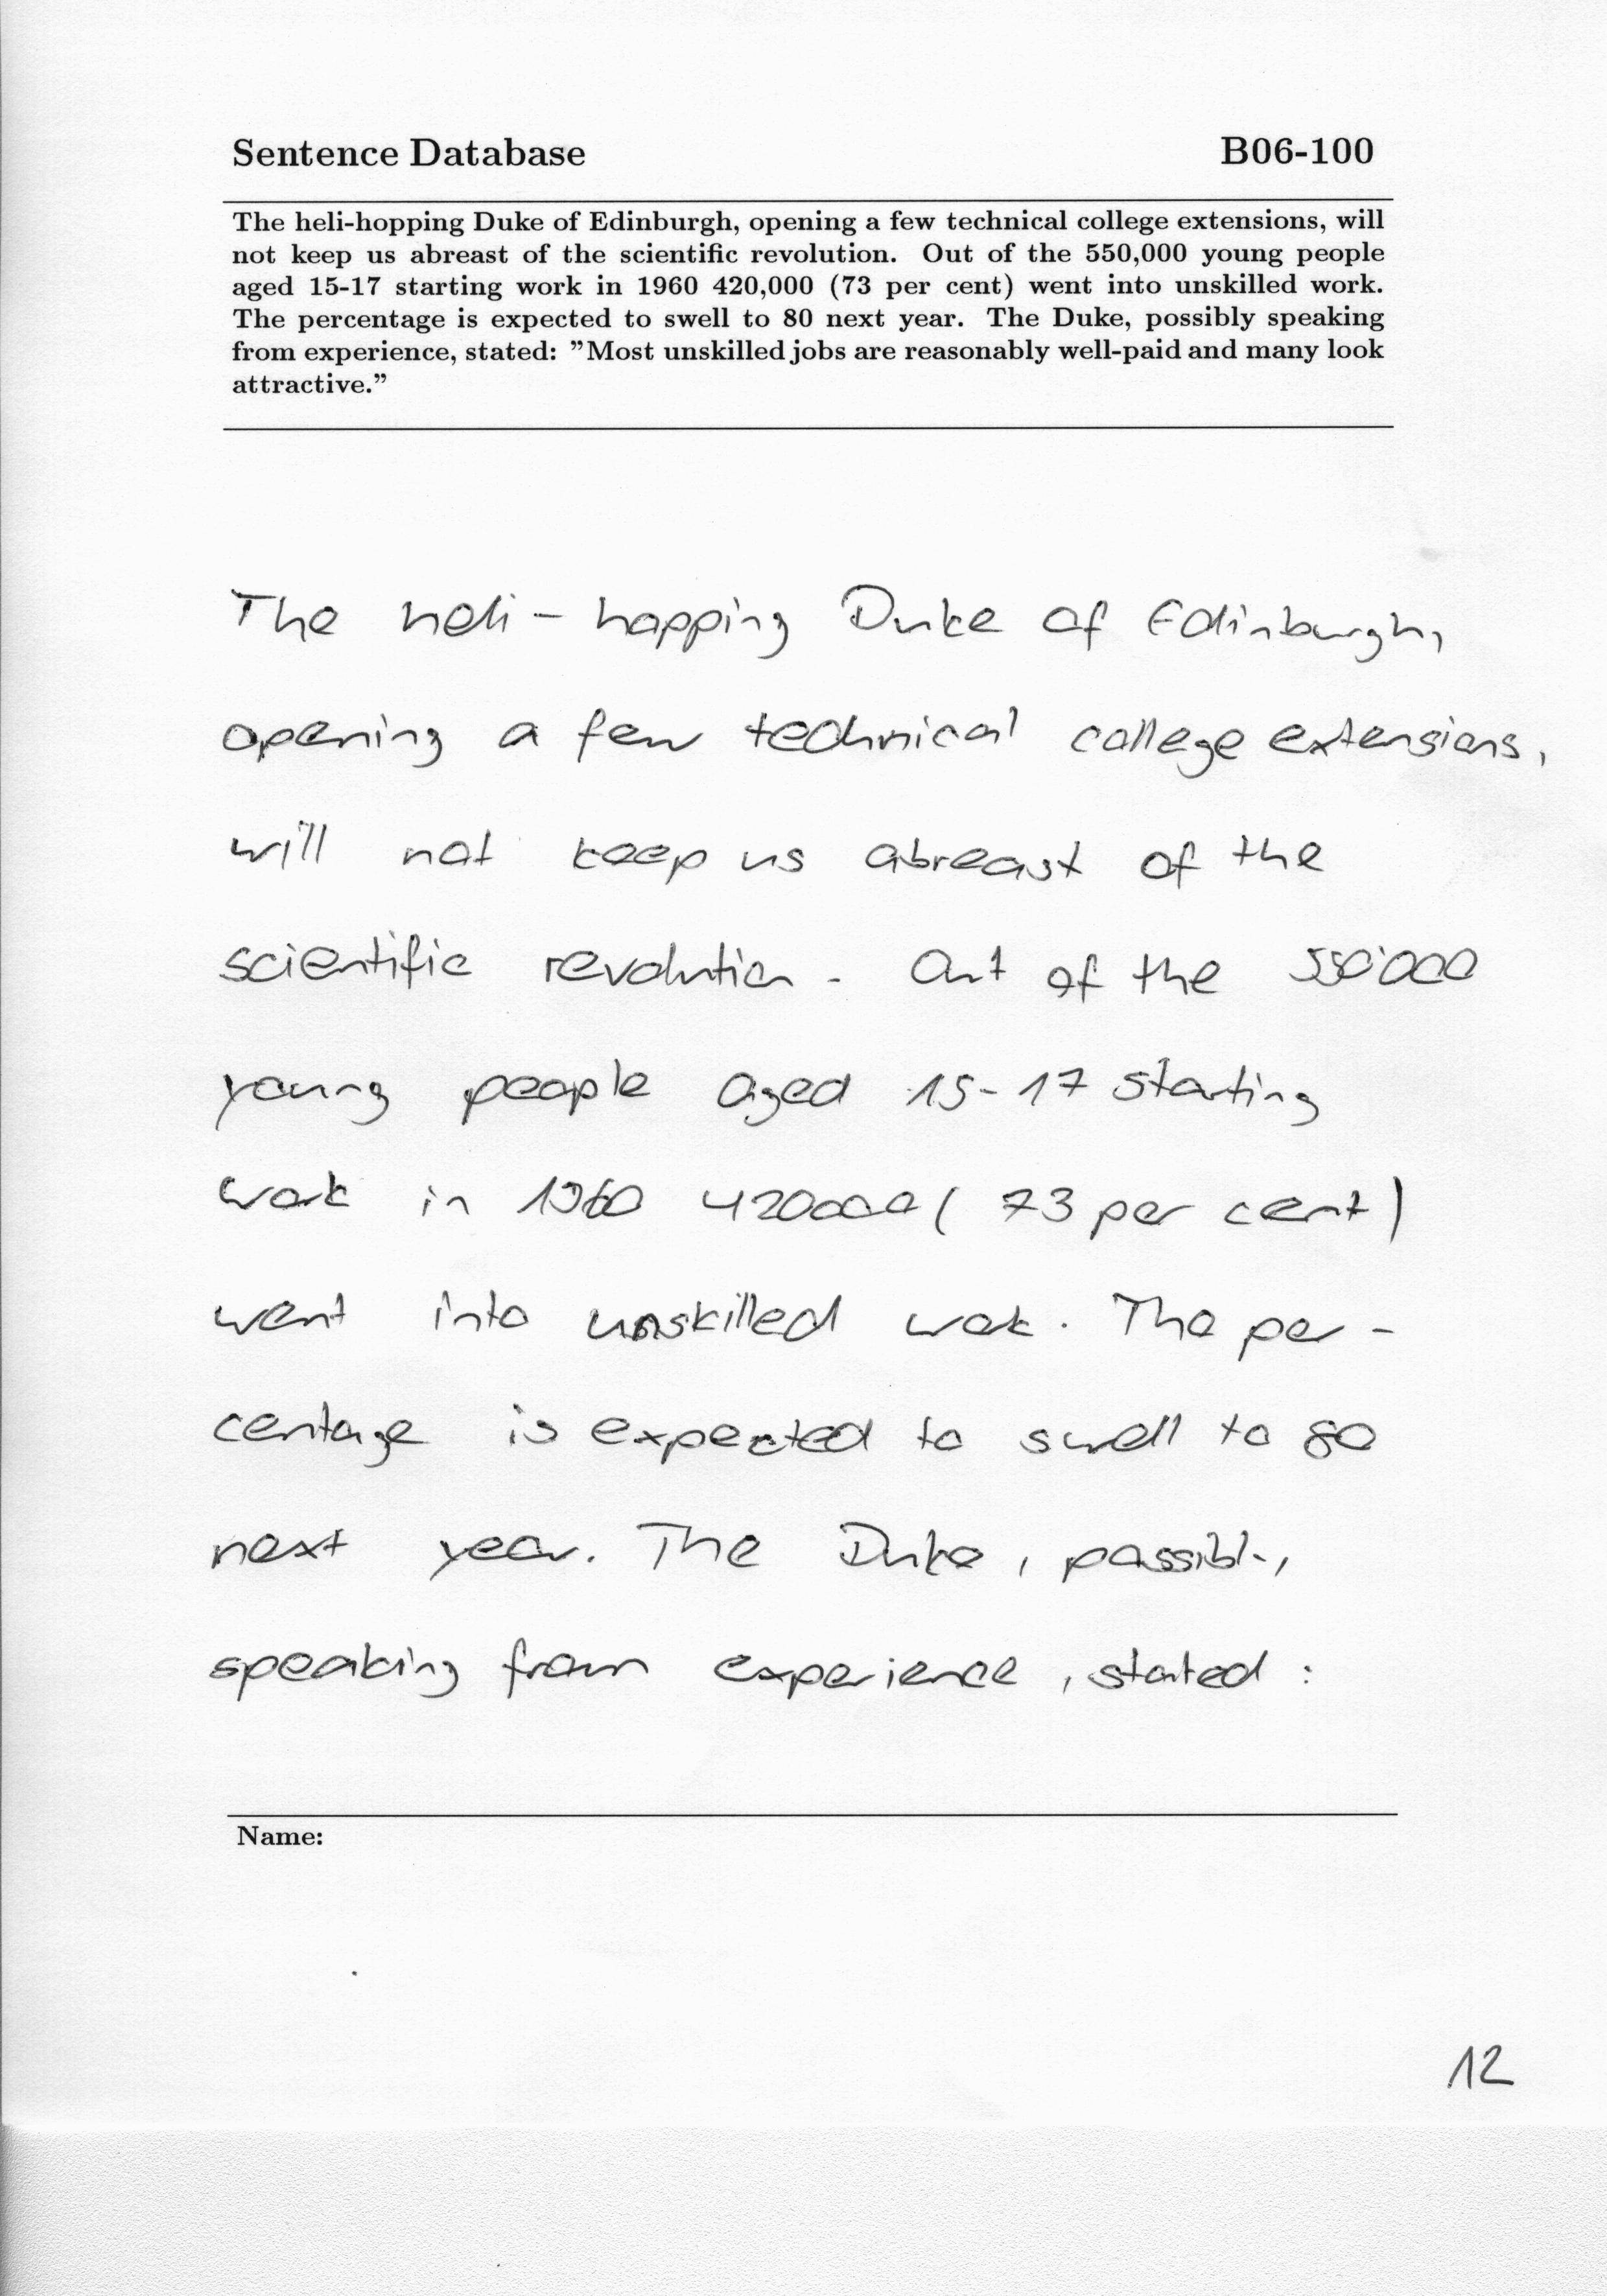 Sentence Database B06-100
The heli-hopping Duke of Edinburgh, opening a few technical college extensions, will
not keep us abreast of the scientific revolution. Out of the 550,000 young people
aged 15-17 starting work in 1960 420,000 (73 per cent) went into unskilled work.
The percentage is expected to swell to 80 next year. The Duke, possibly speaking
from experience, stated: "Most unskilled jobs are reasonably well-paid and many look
attractive."
The heli-hopping Duke of Edinburgh,
opening a few technical college extensions,
will not keep us abreast of the
scientific revolution. Out of the 550'000
young people aged 15-17 starting
work in 1960 420000 (73 per cent)
went into unskilled work. The per-
centage is expected to swell to 80
next year. The Duke, possibly,
speaking from experience, stated:
Name:
12